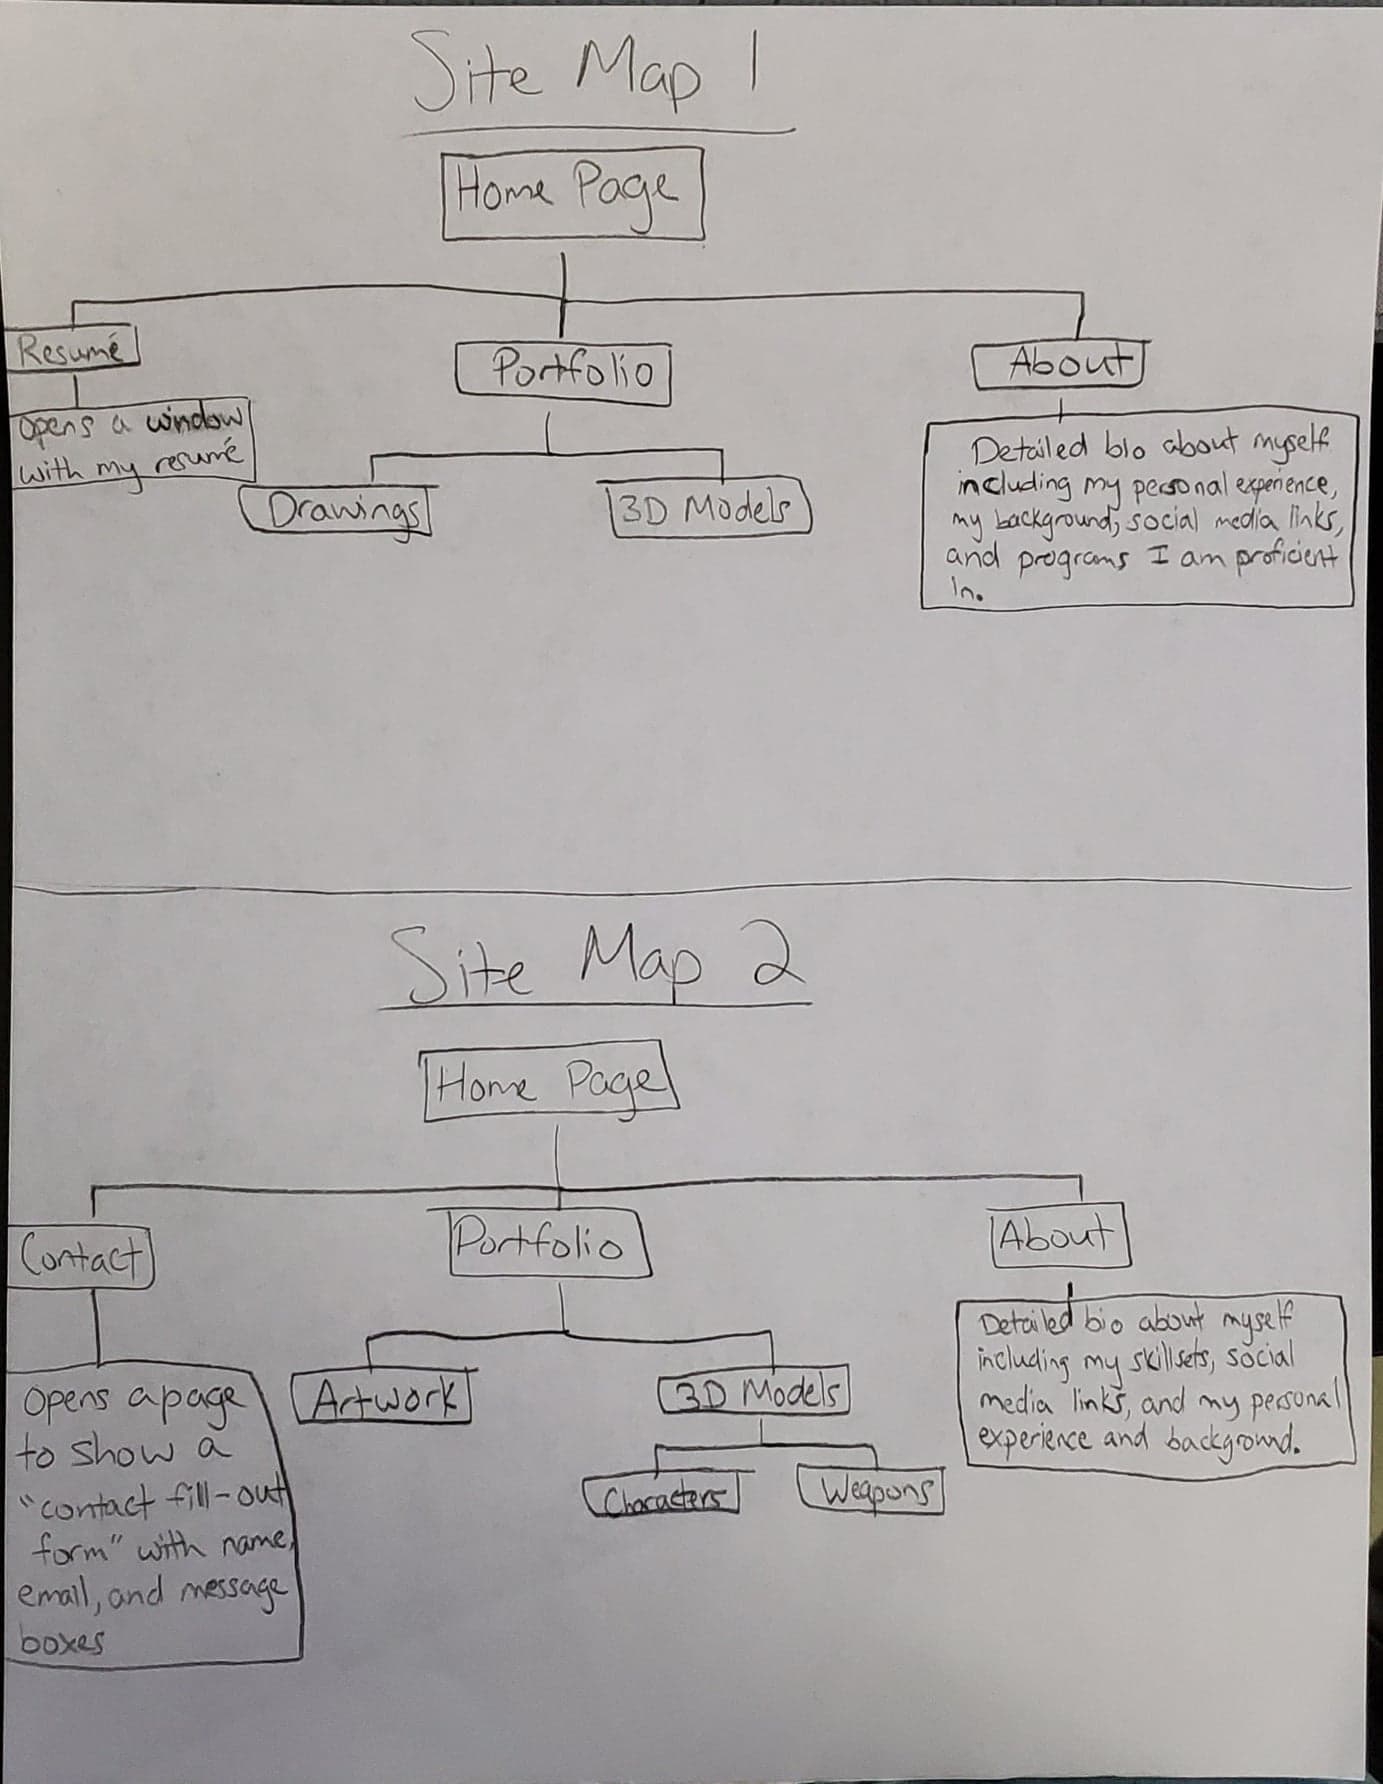 Site Map 1
Home Page
Resumé
Portfolio
About
opens a window
with my resumé
Drawings
3D Models
Detailed bio about myself
including my personal experience,
my background, social media links,
and programs I am proficient
in.
Site Map 2
Home Page
Contact
Portfolio
About
Opens a page
to show a
"contact fill-out
form" with name,
email, and message
boxes
Artwork
3D Models
Characters
Weapons
Detailed bio about myself
including my skillsets, social
media links, and my personal
experience and background.